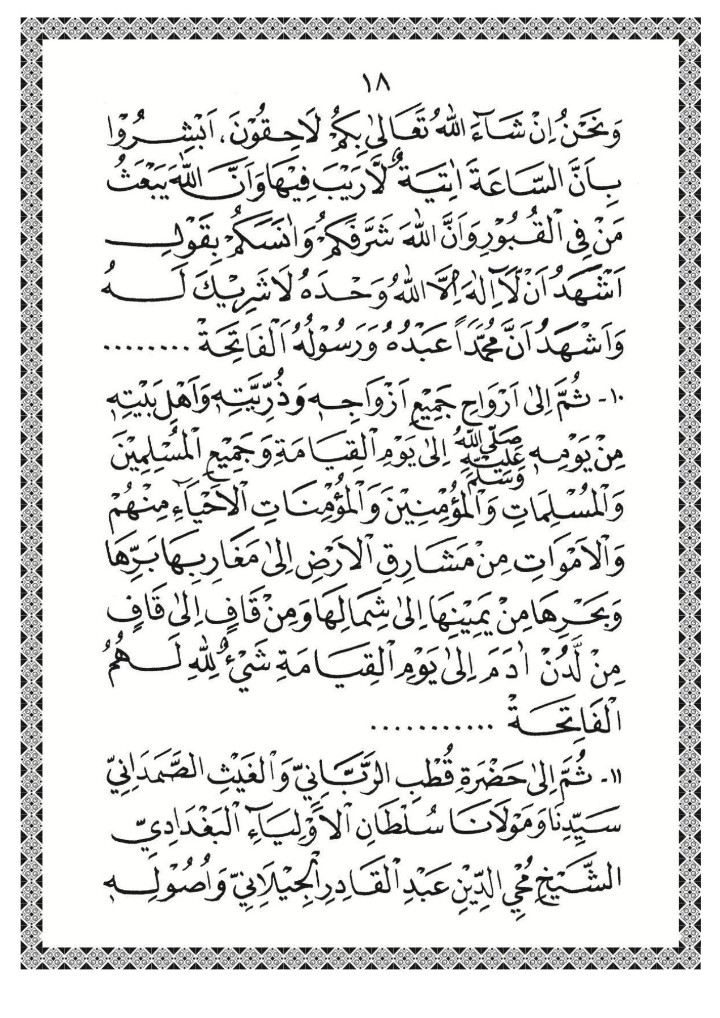 ١٨
وَنَحْنُ اِنْ شَاءَ اللهُ تَعَالىٰ بِكُمْ لَاحِقُوْنَ، اَبْشِرُوْا
بِاَنَّ السَّاعَةَ اٰتِيَةٌ لَّارَيْبَ فِيْهَا وَاَنَّ اللهَ يَبْعَثُ
مَنْ فِى الْقُبُوْرِ وَاَنَّ اللهَ شَرَّفَكُمْ وَاٰنَسَكُمْ بِقَوْلِ
اَشْهَدُ اَنْ لَّااِلٰهَ اِلَّا اللهُ وَحْدَهُ لَاشَرِيْكَ لَهُ
وَاَشْهَدُ اَنَّ مُحَمَّدًا عَبْدُهُ وَرَسُوْلُهُ اَلْفَاتِحَةْ ........
١٠- ثُمَّ اِلىٰ اَرْوَاحِ جَمِيْعِ اَزْوَاجِهِ وَذُرِّيَّتِهِ وَاَهْلِ بَيْتِهِ
مِنْ يَوْمِهِ صَلَّى اللهُ عَلَيْهِ وَسَلَّمَ اِلىٰ يَوْمِ الْقِيَامَةِ وَجَمِيْعِ الْمُسْلِمِيْنَ
وَالْمُسْلِمَاتِ وَالْمُؤْمِنِيْنَ وَالْمُؤْمِنَاتِ الْاَحْيَآءِ مِنْهُمْ
وَالْاَمْوَاتِ مِنْ مَشَارِقِ الْاَرْضِ اِلىٰ مَغَارِبِهَا بَرِّهَا
وَبَحْرِهَا مِنْ يَمِيْنِهَا اِلىٰ شِمَالِهَا وَمِنْ قَافٍ اِلىٰ قَافٍ
مِنْ لَّدُنْ اٰدَمَ اِلىٰ يَوْمِ الْقِيَامَةِ شَيْءٌ لِلّٰهِ لَهُمُ
الْفَاتِحَةْ ...........
١١- ثُمَّ اِلىٰ حَضْرَةِ قُطْبِ الرَّبَّانِيِّ وَالْغَيْثِ الصَّمَدَانِيِّ
سَيِّدِنَا وَمَوْلَانَا سُلْطَانِ الْاَوْلِيَآءِ الْبَغْدَادِيِّ
الشَّيْخِ مُحْيِ الدِّيْنِ عَبْدِ الْقَادِرِ الْجِيْلَانِيِّ وَاُصُوْلِهِ